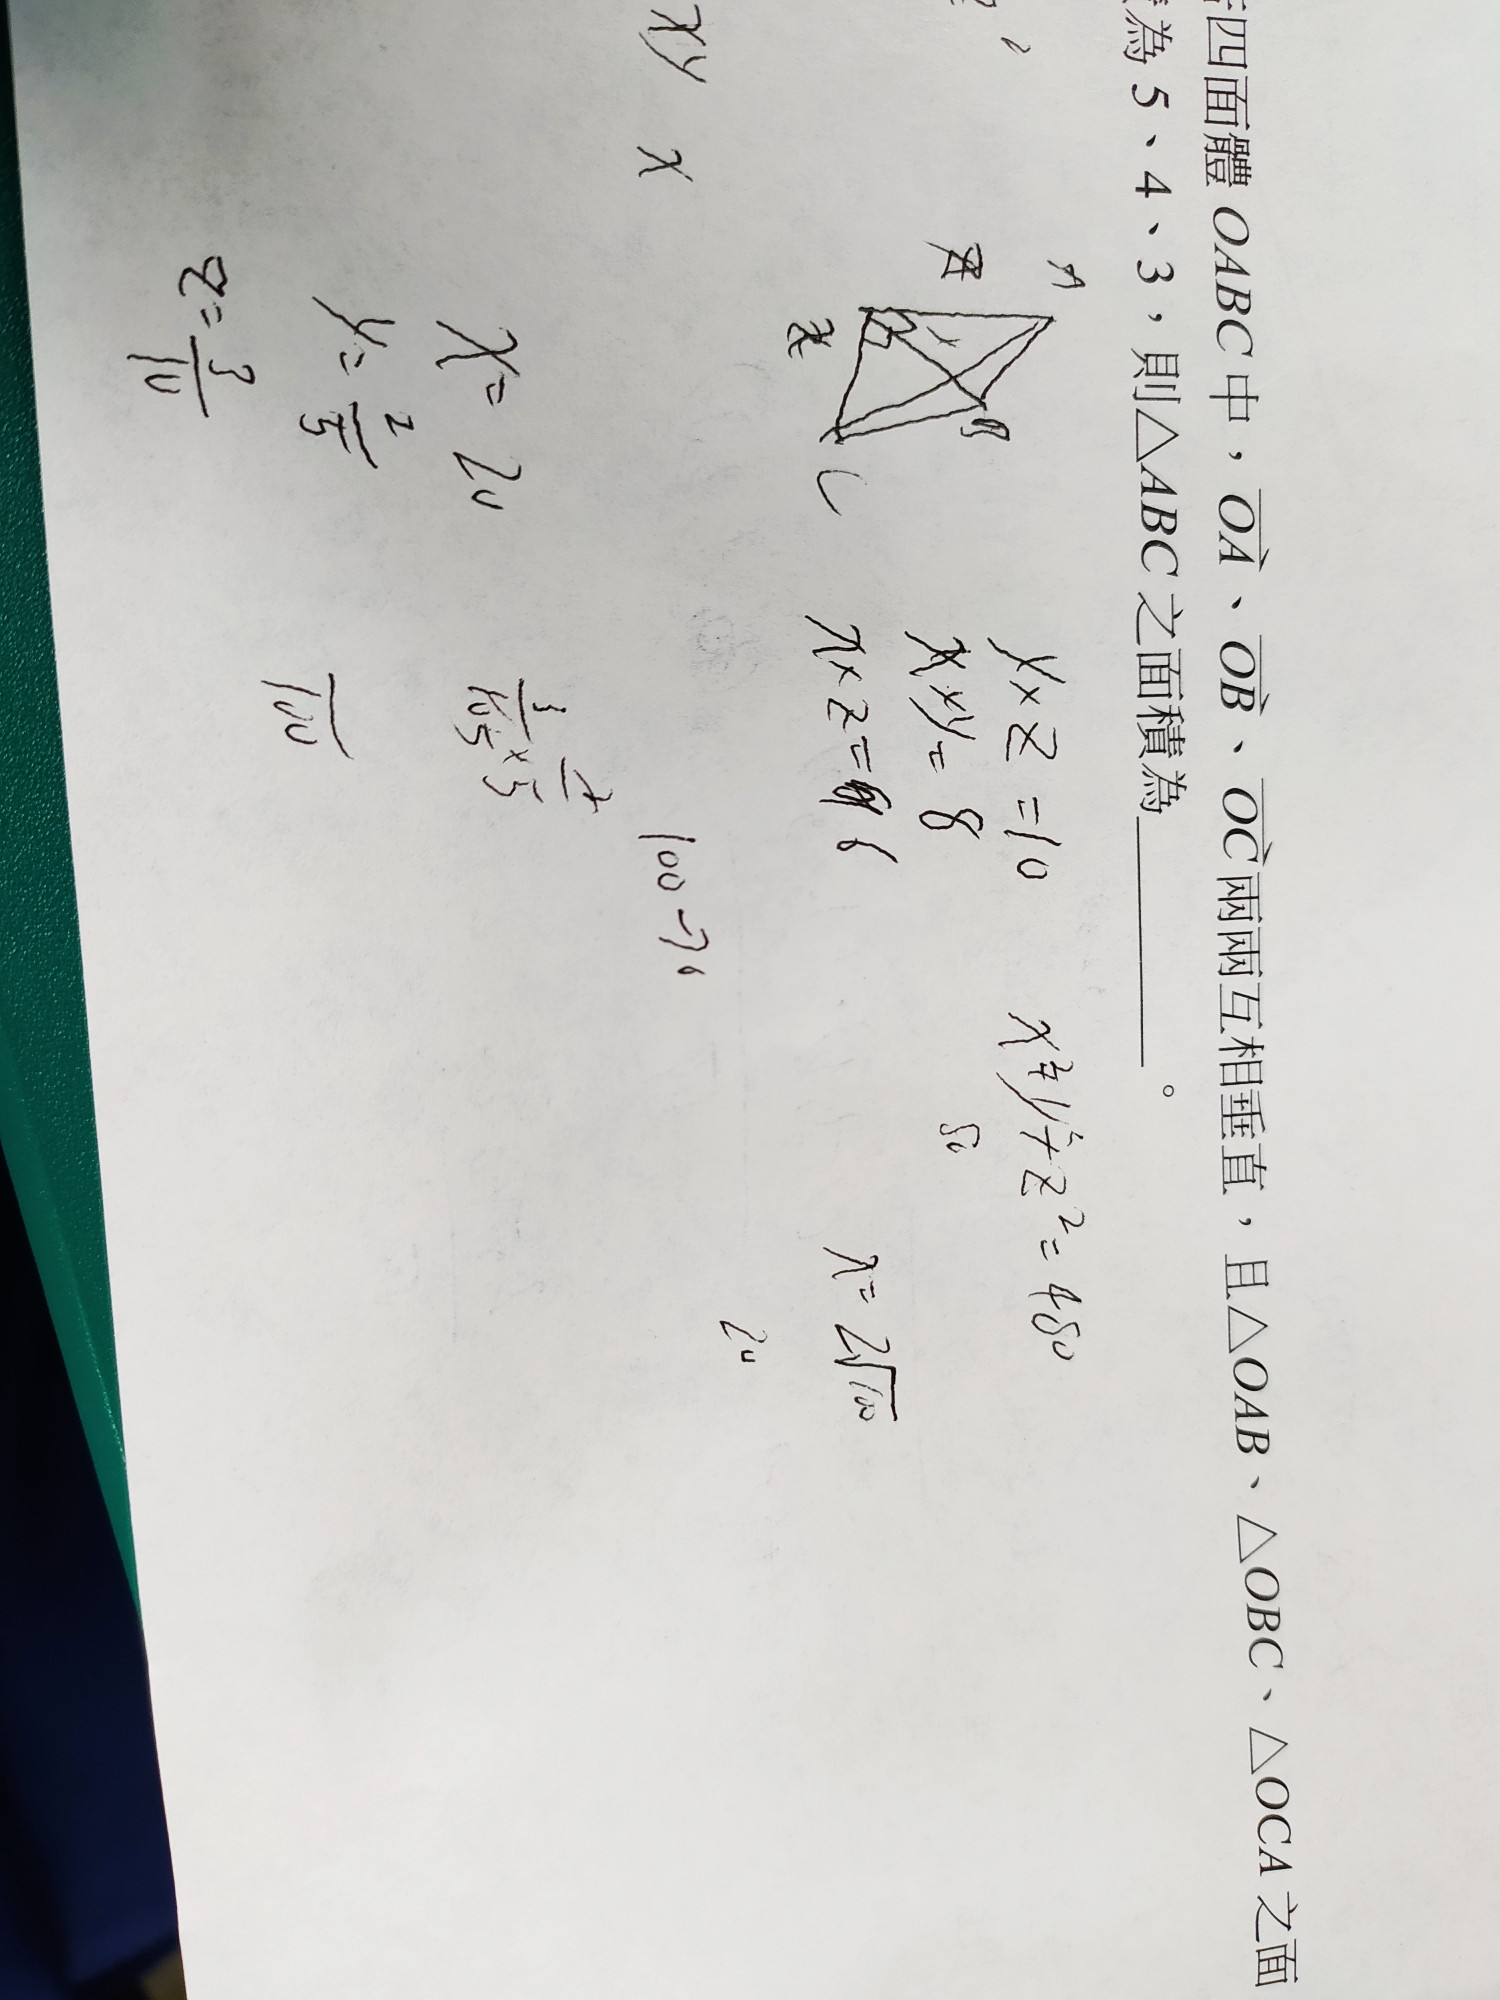 四面體 OABC 中，OA、OB、OC 兩兩互相垂直，且△OAB、△OBC、△OCA 之面
為 5、4、3，則△ABC 之面積為＿＿＿＿。
A
B
C
y×z=10
x×y=8
x×z=6
x²+y²+z²=480
50
x=2√100
20
xy x
100-76
x=20
y=2/5
z=3/10
100